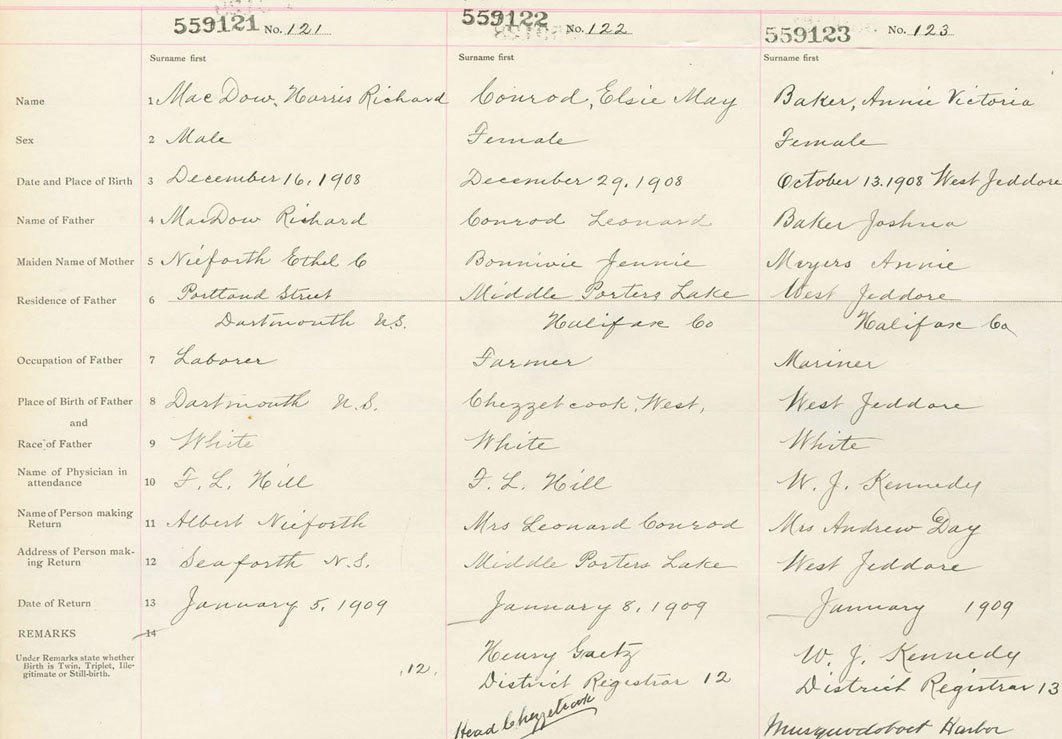 559121 No. 121 559122 No. 122 559123 No. 123
Surname first Surname first Surname first
Name 1 MacDow, Harris Richard Conrod, Elsie May Baker, Annie Victoria
Sex 2 Male Female Female
Date and Place of Birth 3 December 16, 1908 December 29, 1908 October 13. 1908 West Jeddore
Name of Father 4 MacDow Richard Conrod Leonard Baker Joshua
Maiden Name of Mother 5 Nieforth Ethel C Bonnivie Jennie Meyers Annie
Residence of Father 6 Portland Street Middle Porters Lake West Jeddore
Dartmouth N.S. Halifax Co Halifax Co
Occupation of Father 7 Laborer Farmer Mariner
Place of Birth of Father 8 Dartmouth N.S. Chezzetcook, West, West Jeddore
and
Race of Father 9 White White White
Name of Physician in
attendance 10 F. L. Hill F. L. Hill W. J. Kennedy
Name of Person making
Return 11 Albert Nieforth Mrs Leonard Conrod Mrs Andrew Day
Address of Person mak-
ing Return 12 Seaforth N.S. Middle Porters Lake West Jeddore
Date of Return 13 January 5, 1909 January 8, 1909 January 1909
REMARKS 14
Under Remarks state whether
Birth is Twin, Triplet, Ille-
gitimate or Still-birth.
12. Henry Gaetz W. J. Kennedy
District Registrar 12 District Registrar 13
Head Chezzetcook Musquodoboit Harbor